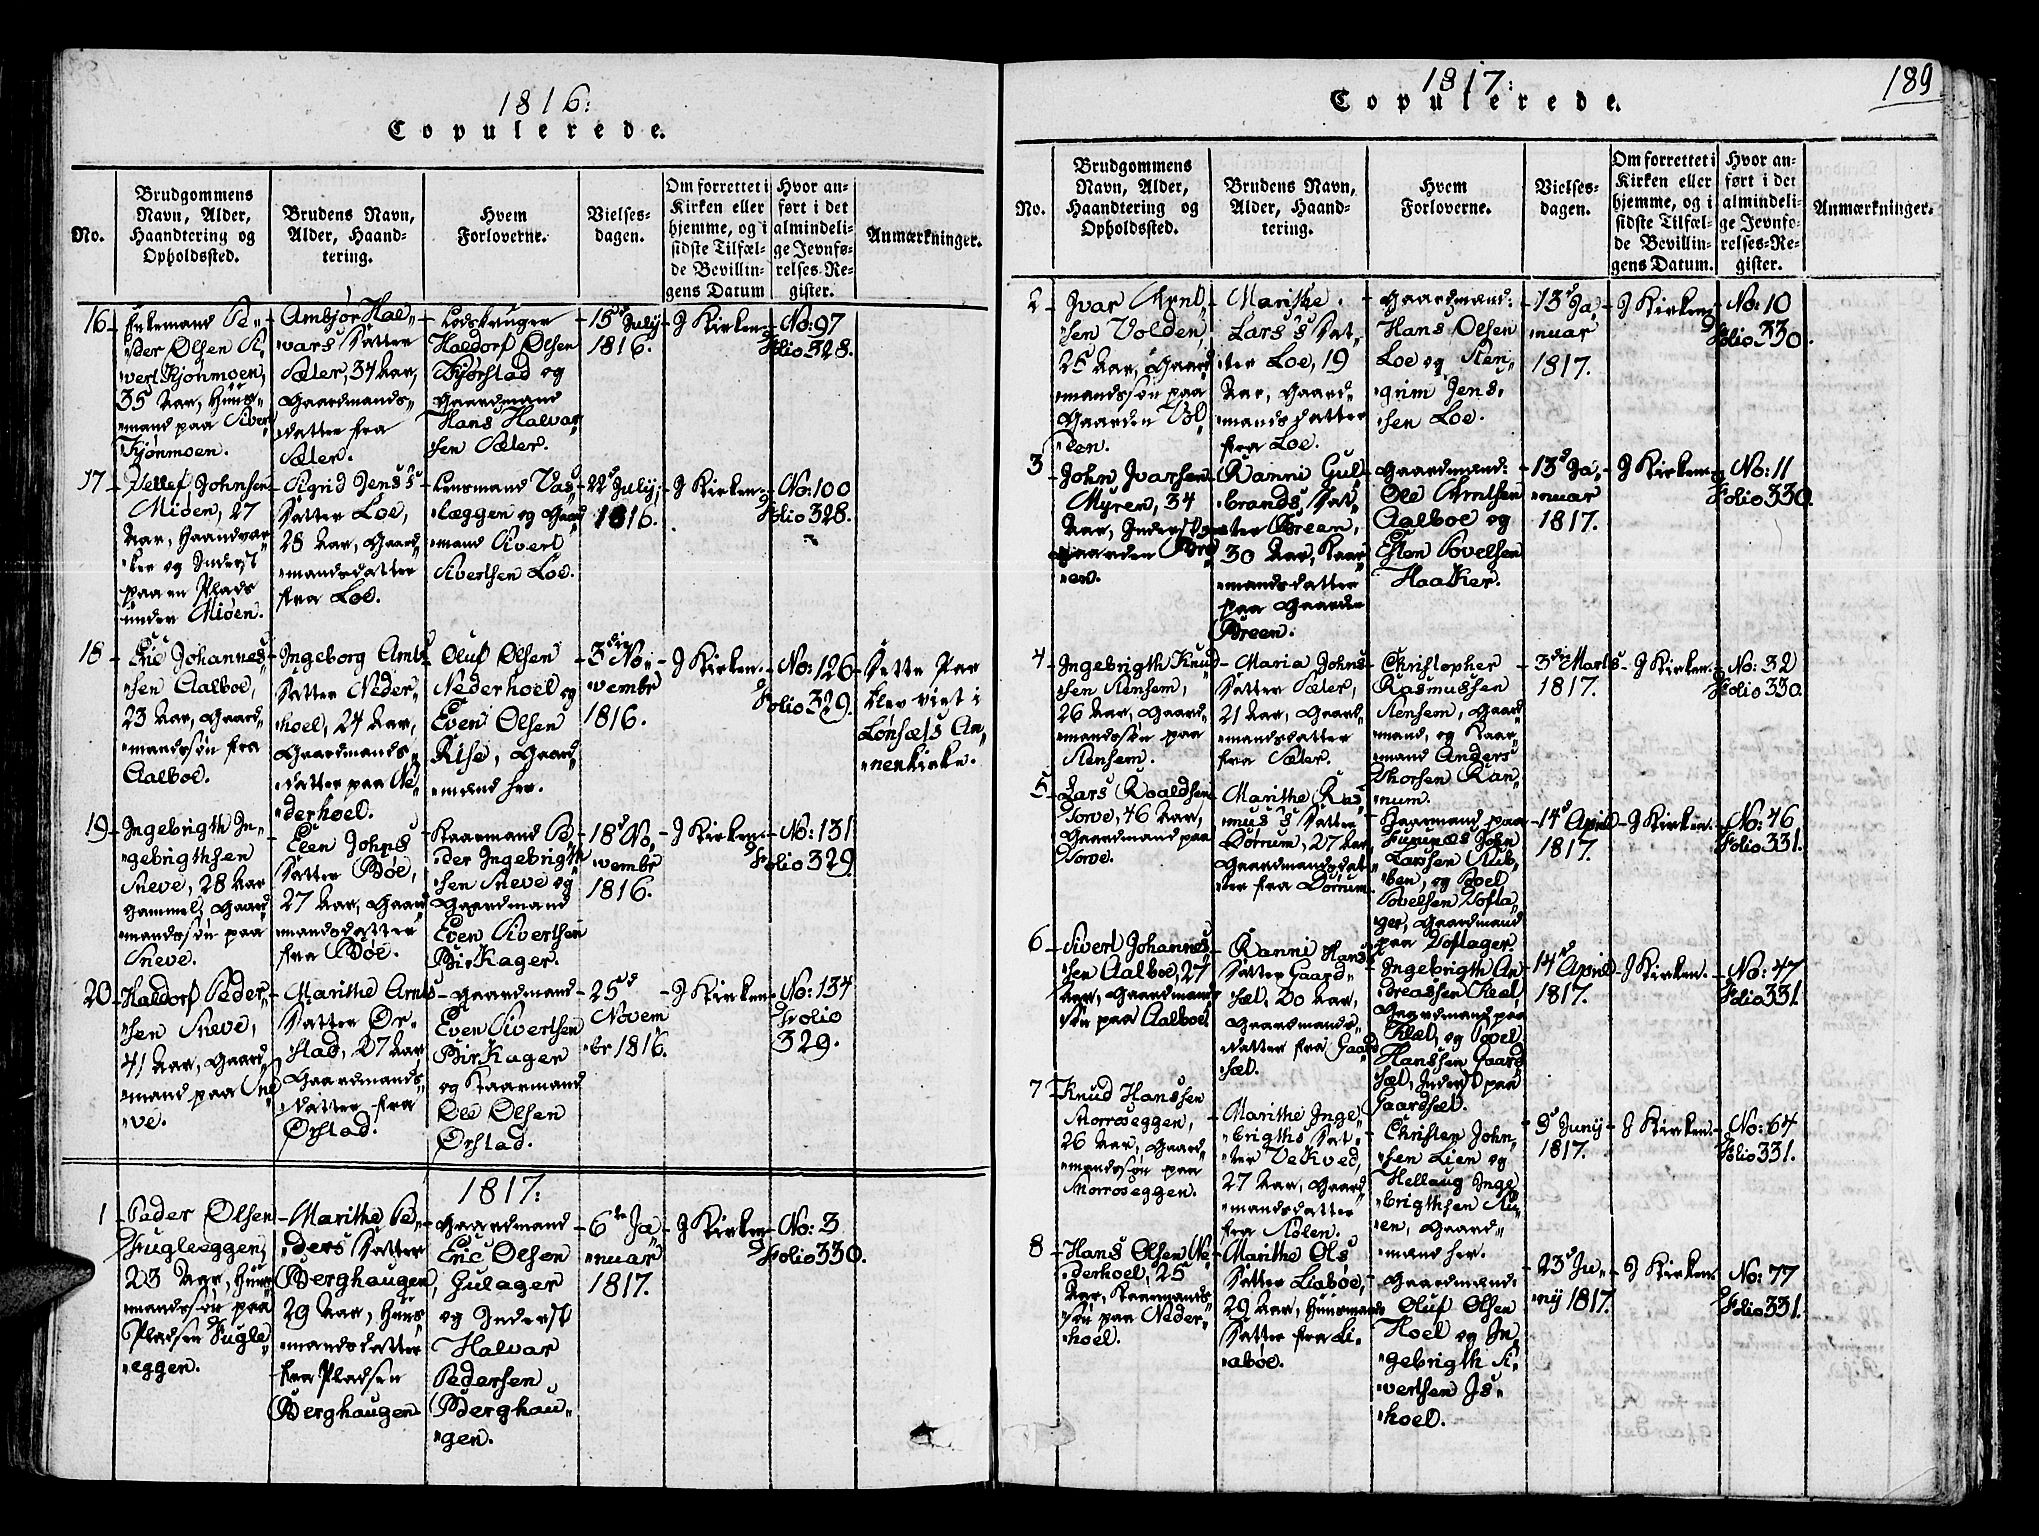 1816:
Copulerede.
No.
Brudgommens
Navn, Alder,
Haandtering og
Opholdssted.
Brudens Navn,
Alder, Haand-
tering.
Hvem
Forloverne.
Vielses-
dagen.
Om forrettet i
Kirken eller
hjemme, og i
sidste Tilfæl-
de Bevillin-
gens Datum
Hvor an-
ført i det
almindeli-
ge Jevnfø-
relses-Re-
gister.
Anmærkninger.
16
Enkemand Pe-
der Olsen Si-
vert Kjønmoen,
35 Aar, Huus-
mand paa Sivert
Kjønmoen.
Ambjør Hal-
vars Datter
Sæler, 34 Aar,
Gaardmands-
datter fra
Sæler.
Haldorf Olsen
Bjørstad og
Gaardmand
Hans Halvar
sen Sæler.
15d July
1816.
J Kirken.
No: 97
Folio 328.
17
Dellef Johnsen
Mioen, 27
Aar, Haandvær-
ker og Inderst
paa en Plads
under Mioen.
Sigrid Jens's
Datter Loe,
28 Aar, Gaard-
mandsdatter
fra Loe.
Lensmand Vas-
læggen og Gaard
mand Sivert
Sivertsen Loe.
22d July
1816.
J Kirken.
No: 100
Folio 328.
18
Eric Johannes-
sen Aalboe,
23 Aar, Gaard-
mandssøn fra
Aalboe.
Ingeborg Arnts
Datter Neder-
hoel, 24 Aar,
Gaardmands-
datter paa Ne-
derhoel.
Oluf Olsen
Nederhoel og
Even Olsen
Rise, Gaard-
mænd her.
3die No-
vembr
1816.
J Kirken.
No: 126
Folio 329.
Dette Par
blev viet i
Lønsets An-
nexkirke.
19
Ingebrigth In-
gebrigthsen
Sneve, 28 Aar
gammel, Gaard-
mandssøn paa
Sneve.
Elen Johns
Datter Bøe,
27 Aar, Gaard
mandsdatter
fra Bøe.
Kaarmand Pe-
der Ingebrigth
sen Sneve og
Gaardmand
Even Sivertsen
Birkager.
18d No-
vembr
1816.
J Kirken.
No: 131
Folio 329
20
Haldorf Peder-
sen Sneve,
41 Aar, Gaard-
mand paa Sne
ve.
Marithe Arnts
Datter Ør-
stad, 27 Aar
Gaardmands-
datter fra
Ørstad.
Gaardmand
Even Sivertsen
Birkager
og Kaarmand
Ole Olsen
Ørstad.
25d
Novem
br 1816.
J Kirken
No: 134
Folio
329.
1817:
1
Peder Olsen
Fugleeggen,
23 Aar, Huus
mandssøn paa
Pladsen Fugle
eggen.
Marithe Pe-
ders Datter
Berghaugen,
29 Aar, Huus-
mandsdatter
fra Pladsen
Berghaugen
Gaardmand
Eric Olsen
Gulager
og Inderst
Halvar
Pedersen
Berghau-
gen.
6te Ja-
nuar
1817.
J Kirken
No: 3
Folio 330.
1817:
189
Copulerede.
No.
Brudgommens
Navn, Alder,
Haandtering og
Opholdssted.
Brudens Navn,
Alder, Haand-
tering.
Hvem
Forloverne.
Vielses-
dagen.
Om forrettet i
Kirken eller
hjemme, og i
sidste Tilfæl-
de Bevillin-
gens Datum.
Hvor an-
ført i det
almindeli-
ge Jevnfø-
relses-Re-
gister.
Anmærkninger.
2
Ivar Arnt-
sen Volden,
25 Aar, Gaard
mandssøn paa
Gaarden Vol
den.
Marithe
Lars's Dat-
ter Loe, 19
Aar, Gaard-
mandsdatter
fra Loe.
Gaardmænd:
Hans Olsen
Loe og Sten-
grim Jens-
sen Loe.
13d Ja-
nuar
1817.
J Kirken
No: 10
Folio 330.
3
John Ivarsen
Myren, 34
Aar, Inderst paa
Gaarden Bre
en.
Ranni Gul-
brands Dat-
ter Breen,
30 Aar, Kaar
mandsdatter
paa Gaarden
Breen.
Gaardmænd:
Ole Arntsen
Aalboe og
Esten Povelsen
Haaker.
13d Ja-
nuar
1817.
J Kirken
No: 11
Folio 330.
4
Ingebrigth Knud
sen Stensem,
26 Aar, Gaard-
mandssøn paa
Stensem.
Maria Johns
Datter Sæler,
21 Aar, Gaard-
mandsdatter
fra Sæler.
Christopher
Rasmussen
Stensem, Gaard-
mand, og Kaar-
mand Anders
Thorsen Ran-
num.
3die Marts
1817.
J Kirken.
No: 32
Folio 330
5
Lars Roaldsen
Dorve, 46 Aar,
Gaardmand paa
Dorve.
Marithe Ras
mus's Datter
Dorrum, 27 Aar,
Gaardmandsdat-
ter fra Dorrum.
Kaarmand paa
Furunæs John
Larssen Stub-
ben, og Povel
Povelsen Vofla-
ger, Gaardmand
paa Voflager.
14d April
1817.
J Kirken.
No: 46
Folio 331.
6
Sivert Johannes-
sen Aalboe, 27
Aar, Gaardmands
søn paa Aalboe
Ranni Hans
Datter Gaard-
sæl, 20 Aar,
Gaardmands-
datter fra Gaard
sæl.
Ingebrigth An-
dreassen Kleel,
Gaardmand paa
Kleel, og Povel
Hanssen Gaard
sæl, Inderst paa
Gaardsæl.
14d April
1817.
J Kirken.
No: 47
Folio 331.
7
Knud Hanssen
Morroseggen,
26 Aar, Gaard-
mandssøn paa
Morroseggen.
Marithe Inge-
brigths Dat-
ter Vekved,
27 Aar, Gaard-
mandsdatter
fra Stølen.
Christen John-
sen Lien og
Hellaug Inge
brigthsen Stu-
en, Gaard-
mænd her.
9d Juny
1817.
J Kirken.
No: 64
Folio 331.
8
Hans Olsen Ne-
derhoel, 25
Aar, Kaarmands-
søn paa Neder-
hoel.
Marithe Ols
Datter Liabøe,
29 Aar, Huusmands
Datter fra Li-
abøe.
Gaardmænd:
Oluf Olsen
Hoel og In-
gebrigth Si-
vertsen Is-
hoel.
23d Ju-
ny 1817.
J Kirken
No: 77
Folio 331.